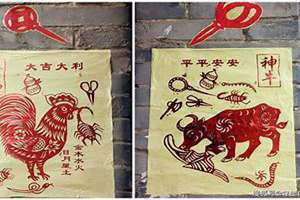 大吉大利
金木水火
日月星土
平平安安
神牛